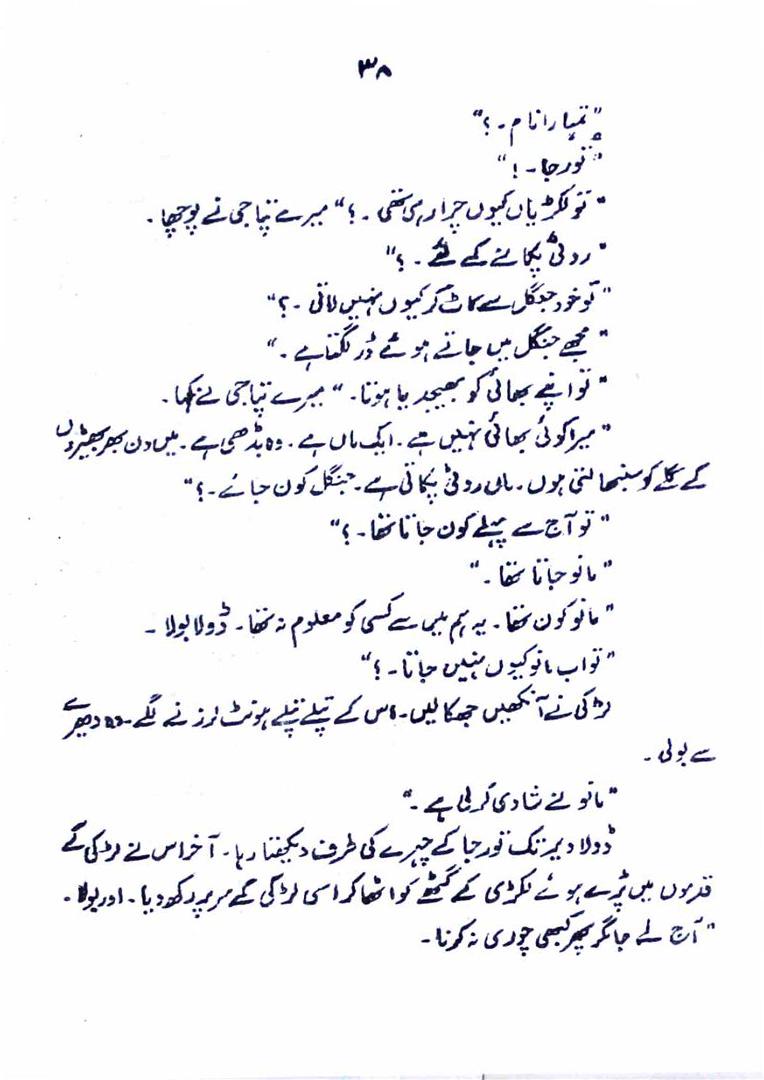 ۳۸
"تمہارا نام ۔ ؟"
"تورجا ۔ !"
"تو لکڑیاں کیوں چرا رہی تھی ۔ ؟" میرے پتا جی نے پوچھا ۔
"روٹی پکانے کے لئے ۔ ؟"
"تو خود جنگل سے کاٹ کر کیوں نہیں لاتی ۔ ؟"
"مجھے جنگل میں جاتے ہوئے ڈر لگتا ہے ۔"
"تو اپنے بھائی کو بھیجدیا ہوتا ۔" میرے پتا جی نے کہا ۔
"میرا کوئی بھائی نہیں ہے ۔ ایک ماں ہے ۔ وہ بڈھی ہے ۔ میں دن بھر بھیڑوں
کے گلے کو سنبھالتی ہوں ۔ ماں روٹی پکاتی ہے ۔ جنگل کون جائے ۔ ؟"
"تو آج سے پہلے کون جاتا تھا ۔ ؟"
"مانو جاتا تھا ۔"
"مانو کون تھا ۔ یہ ہم میں سے کسی کو معلوم نہ تھا ۔ ڈولا بولا ۔
"تو اب مانو کیوں نہیں جاتا ۔ ؟"
لڑکی نے آنکھیں جھکا لیں ۔ اس کے پتلے پتلے ہونٹ لرزنے لگے ۔ وہ دھیرے
سے بولی ۔
"مانو نے شادی کر لی ہے ۔"
ڈولا دیر تک تورجا کے چہرے کی طرف دیکھتا رہا ۔ آخر اس نے لڑکی کے
قدموں میں پڑے ہوئے لکڑی کے گٹھے کو اٹھا کر اسی لڑکی کے سر پر رکھ دیا ۔ اور بولا ۔
"آج لے جا مگر پھر کبھی چوری نہ کرنا ۔